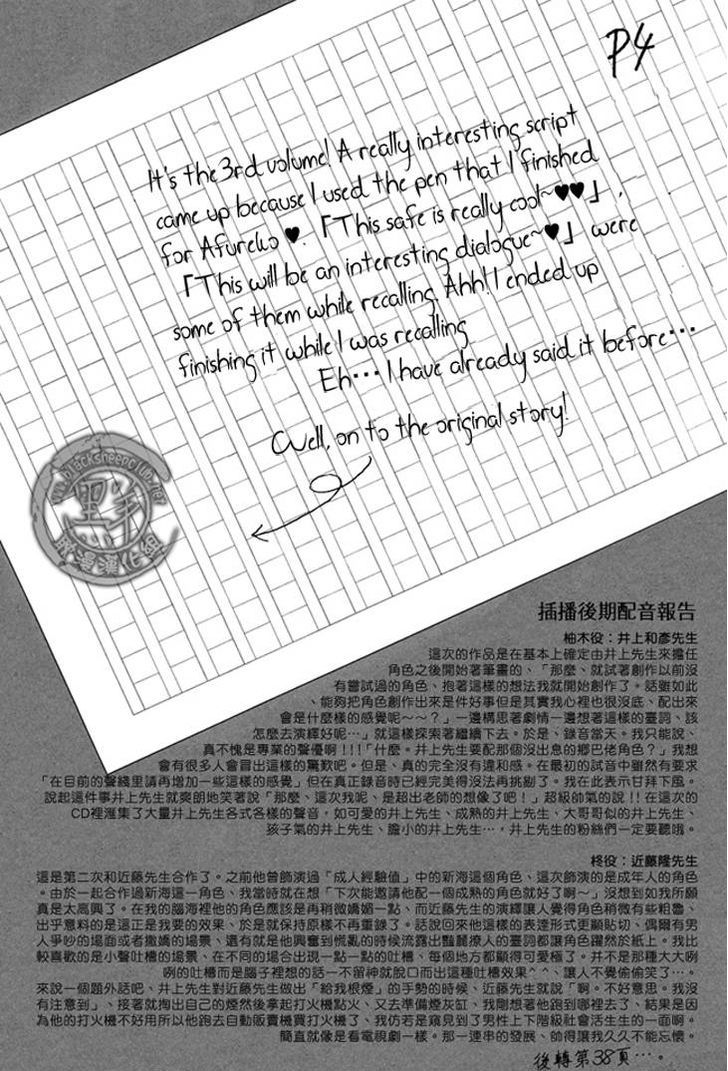 P4
It's the 3rd volume! A really interesting script
came up because I used the pen that I finished
for Afureko ♥. 「This safe is really cool~♥♥」,
「This will be an interesting dialogue~♥」 were
some of them while recalling. Ahh! I ended up
finishing it while I was recalling
Eh･･･ I have already said it before･･･
Well, on to the original story!
www.blacksheepclub.net
黑羊
插播後期配音報告
柚木役：井上和彥先生
這次的作品是在基本上確定由井上先生來擔任
角色之後開始著筆畫的、「那麼、就試著創作以前沒
有嘗試過的角色、抱著這樣的想法我就開始創作了。話雖如此
、能夠把角色創作出來是件好事但是其實我心裡也很沒底、配出來
會是什麼樣的感覺呢～～？」一邊構思著劇情一邊想著這樣的臺詞、該
怎麼去演繹好呢…」就這樣探索著繼續下去。於是、錄音當天。我只能說、
真不愧是專業的聲優啊！！！「什麼。井上先生要配那個沒出息的鄉巴佬角色？」我想
會有很多人會冒出這樣的驚歎吧。但是、真的完全沒有違和感。在最初的試音中雖然有要求
「在目前的聲綫里請再增加一些這樣的感覺」但在真正錄音時已經完美得沒法再挑剔了。我在此表示甘拜下風。
說起這件事井上先生就爽朗地笑著說「那麼、這次我呢、是超出老師的想像了吧！」超級帥氣的說！！在這次的
CD裡滙集了大量井上先生各式各樣的聲音，如可愛的井上先生、成熟的井上先生、大哥哥似的井上先生、
孩子氣的井上先生、膽小的井上先生…，井上先生的粉絲們一定要聽哦。
柊役：近藤隆先生
這是第二次和近藤先生合作了。之前他曾飾演過「成人經驗值」中的新海這個角色、這次飾演的是成年人的角色
。由於一起合作過新海這一角色、我當時就在想「下次能邀請他配一個成熟的角色就好了啊～」沒想到如我所願
真是太高興了。在我的腦海裡他的角色應該是再稍微嬌媚一點、而近藤先生的演繹讓人覺得角色稍微有些粗魯、
出乎意料的是這正是我要的效果、於是就保持原樣不再重錄了。話說回來他這樣的表達形式更顯貼切、偶爾有男
人爭吵的場面或者撒嬌的場景、還有就是他興奮到慌亂的時候流露出豔麗撩人的臺詞都讓角色躍然於紙上。我比
較喜歡的是小聲吐槽的場景、在不同的場合出現一點一點的吐槽、每個地方都顯得可愛極了。并不是那種大大咧
咧的吐槽而是腦子裡想的話一不留神就脫口而出這種吐槽效果^ ^、讓人不覺偷偷笑了…。
來說一個題外話吧、井上先生對近藤先生做出「給我根煙」的手勢的時候、近藤先生就說「啊。不好意思。我沒
有注意到」、接著就掏出自己的煙然後拿起打火機點火、又去準備煙灰缸、我剛想著他跑到哪裡去了、結果是因
為他的打火機不好用所以他跑去自動販賣機買打火機了、我仿若是窺見到了男性上下階級社會活生生的一面啊。
簡直就像是看電視劇一樣。那一連串的發展、帥得讓我久久不能忘懷。
後轉第38頁…。